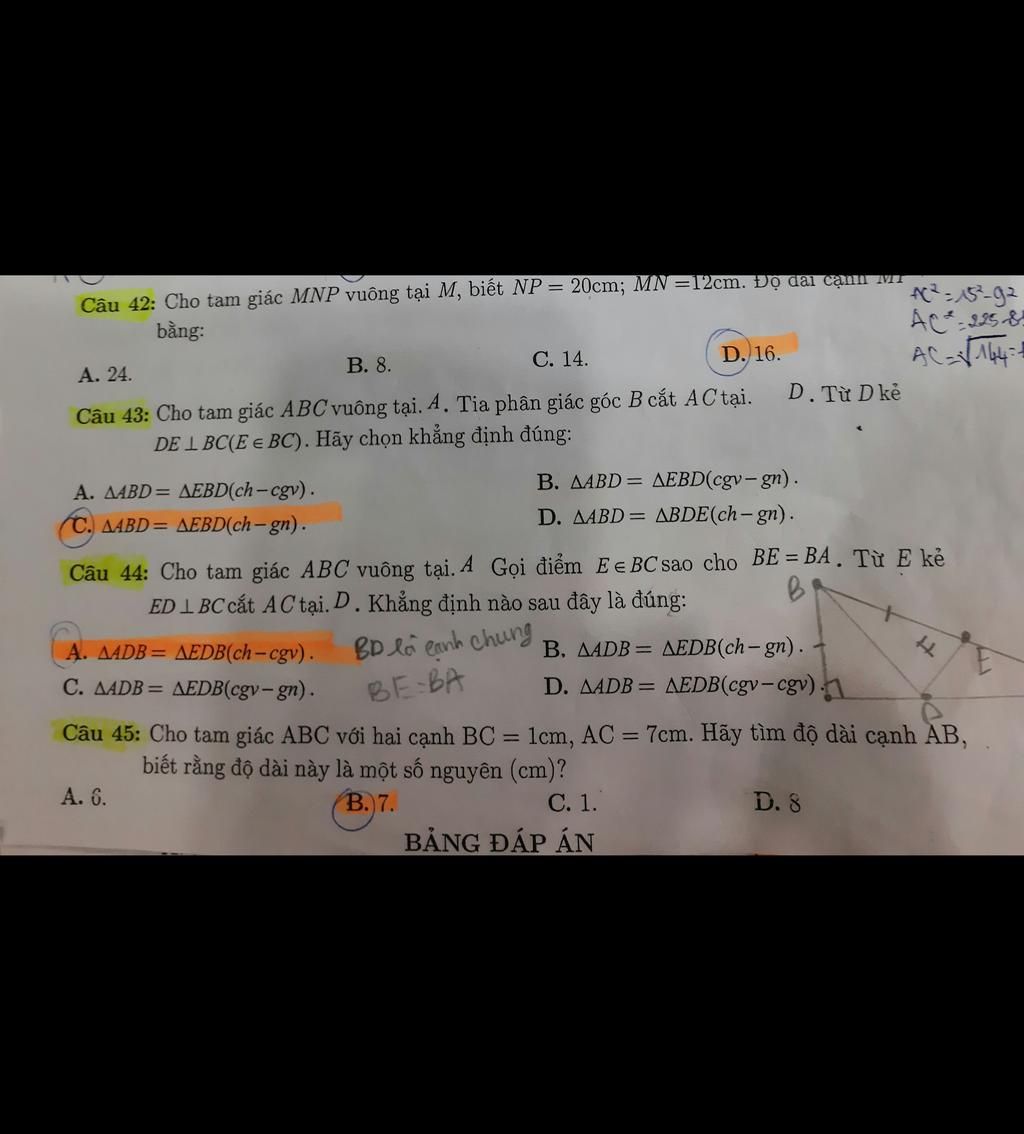 Câu 42: Cho tam giác MNP vuông tại M, biết NP = 20cm; MN =12cm. Độ dài cạnh MP
bằng:
AC² = 15² - 9²
AC² = 225 - 81
AC = √144 =
A. 24. B. 8. C. 14. D. 16.
Câu 43: Cho tam giác ABC vuông tại. A. Tia phân giác góc B cắt AC tại. D. Từ D kẻ
DE ⊥ BC(E ∈ BC). Hãy chọn khẳng định đúng:
A. ΔABD = ΔEBD(ch – cgv). B. ΔABD = ΔEBD(cgv – gn).
C. ΔABD = ΔEBD(ch – gn). D. ΔABD = ΔBDE(ch – gn).
Câu 44: Cho tam giác ABC vuông tại. A Gọi điểm E ∈ BC sao cho BE = BA. Từ E kẻ
ED ⊥ BC cắt AC tại. D. Khẳng định nào sau đây là đúng:
A. ΔADB = ΔEDB(ch – cgv). BD là cạnh chung B. ΔADB = ΔEDB(ch – gn).
C. ΔADB = ΔEDB(cgv – gn). BE = BA D. ΔADB = ΔEDB(cgv – cgv).
B
E
D
Câu 45: Cho tam giác ABC với hai cạnh BC = 1cm, AC = 7cm. Hãy tìm độ dài cạnh AB,
biết rằng độ dài này là một số nguyên (cm)?
A. 6. B. 7. C. 1. D. 8
BẢNG ĐÁP ÁN